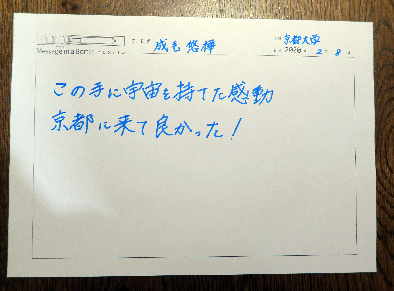 Message in a Bottle
成毛 悠樺
京都大学
2020 2 8
この手に宇宙を持てた感動
京都に来て良かった!